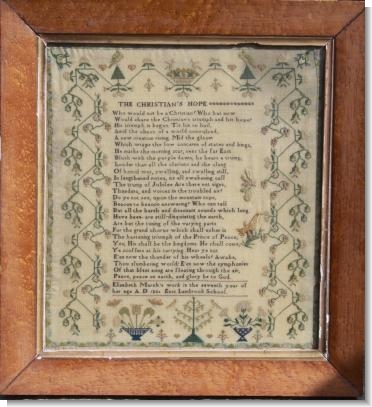 THE CHRISTIAN'S HOPE
Who would not be a Christian? Who but now
Would share the Christian's triumph and his hope?
His triumph is begun. Tis his to hail,
Amid the chaos of a world convulsed,
A new creation rising. Mid the gloom
Which wraps the low concerns of states and kings,
He marks the morning star, sees the far East
Blush with the purple dawn, he hears a trump,
Louder than all the clarions and the clang
Of horrid war, swelling, and swelling still,
In lengthened notes, its all awakening call
The trump of Jubilee Are there not signs,
Thunders, and voices in the troubled air?
Do ye not see, upon the mountain tops,
Beacon to beacon answering? Who can tell
But all the harsh and dissonant sounds which long
Have been are still disquieting the earth,
Are but the tuning of the varying parts
For the grand chorus which shall usher in
The hastening triumph of the Prince of Peace,
Yes, His shall be the kingdoms. He shall come,
Ye scoffers at his tarrying Hear ye not
E'en now the thunder of his wheels? Awake,
Thou slumbering world! E'en now the symphonies
Of that blest song are floating through the air,
Peace, peace on earth, and glory be to God.
Elizabeth March's work in the seventh year of
her age A D East Lambrook School.